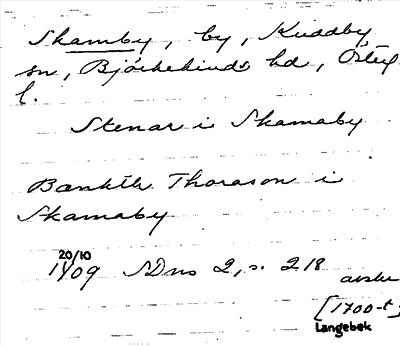 Skamby, by, Kuddby
sn, Björkekinds hd, Östg
l.
Stenar i Skamaby
Thorason i
Skamaby
20/10
1409 SDns 2, s. 218
avskr
[1700-t]
Langebek